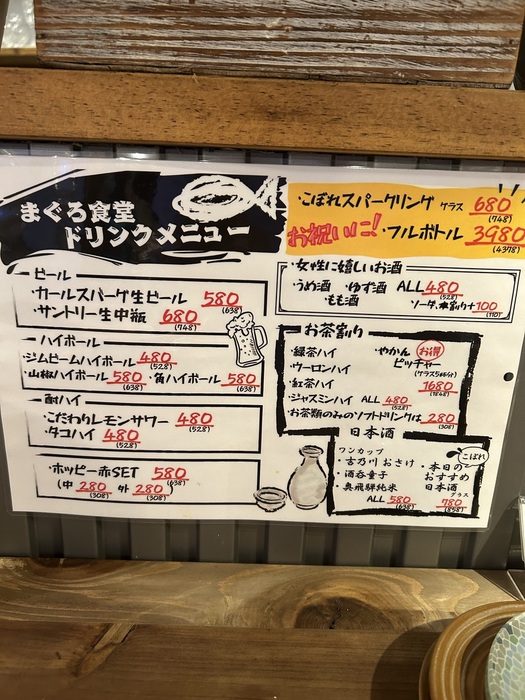 まぐろ食堂
ドリンクメニュー
・こぼれスパークリング グラス 680
(748)
お祝いに! ・フルボトル 3980
(4378)
ビール
・カールスバーグ生ビール 580
(638)
・サントリー生中瓶 680
(748)
ハイボール
・ジムビームハイボール 480
(528)
・山椒ハイボール 580 ・角ハイボール 580
(638) (638)
酎ハイ
・こだわりレモンサワー 480
(528)
・タコハイ 480
(528)
・ホッピー赤SET 580
(638)
(中 280 外 280)
(308) (308)
・女性に嬉しいお酒
・うめ酒 ・ゆず酒 ALL 480
(528)
・もも酒 ソーダ、水割り+100
(110)
お茶割り
・緑茶ハイ
・ウーロンハイ
・紅茶ハイ
・ジャスミンハイ ALL 480
(528)
・お茶類のみのソフトドリンクは 280
(308)
・やかん お得
ピッチャー
(グラス5杯分)
1680
(1848)
日本酒
ワンカップ
・吉乃川 おさけ
・酒呑童子
・奥飛騨純米
ALL 580
(638)
こぼれ
・本日の
おすすめ
日本酒
グラス
780
(858)